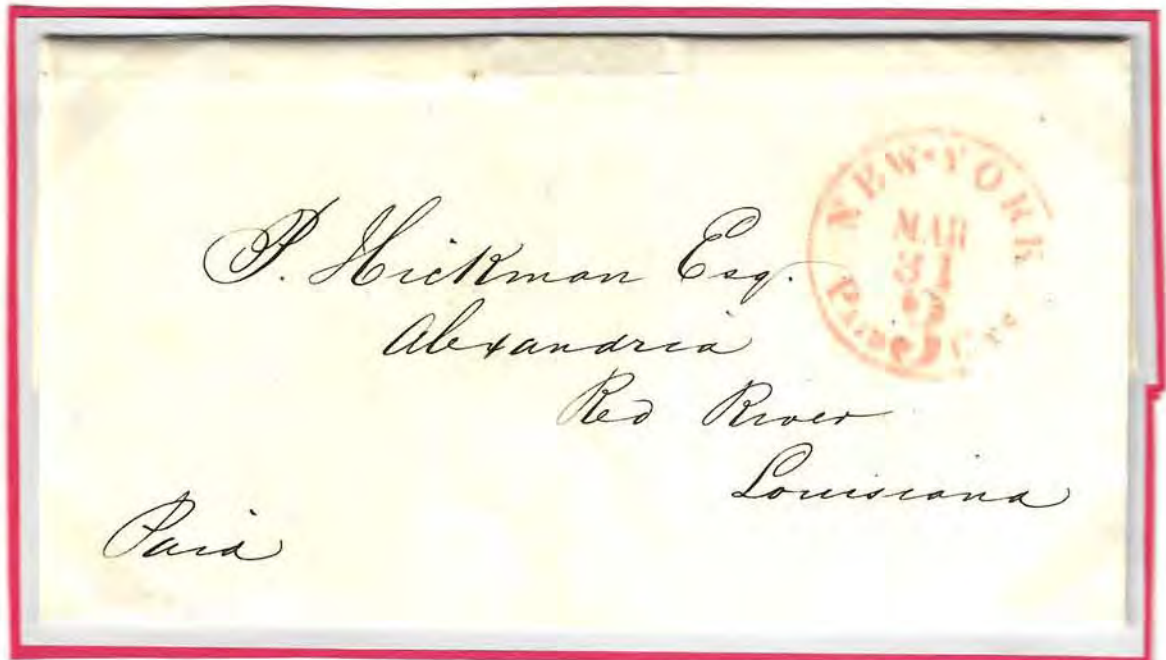 P. Hickman Esq.
Alexandria
Red River
Louisiana
Paid
NEW-YORK
MAR
Paid 3 Cts